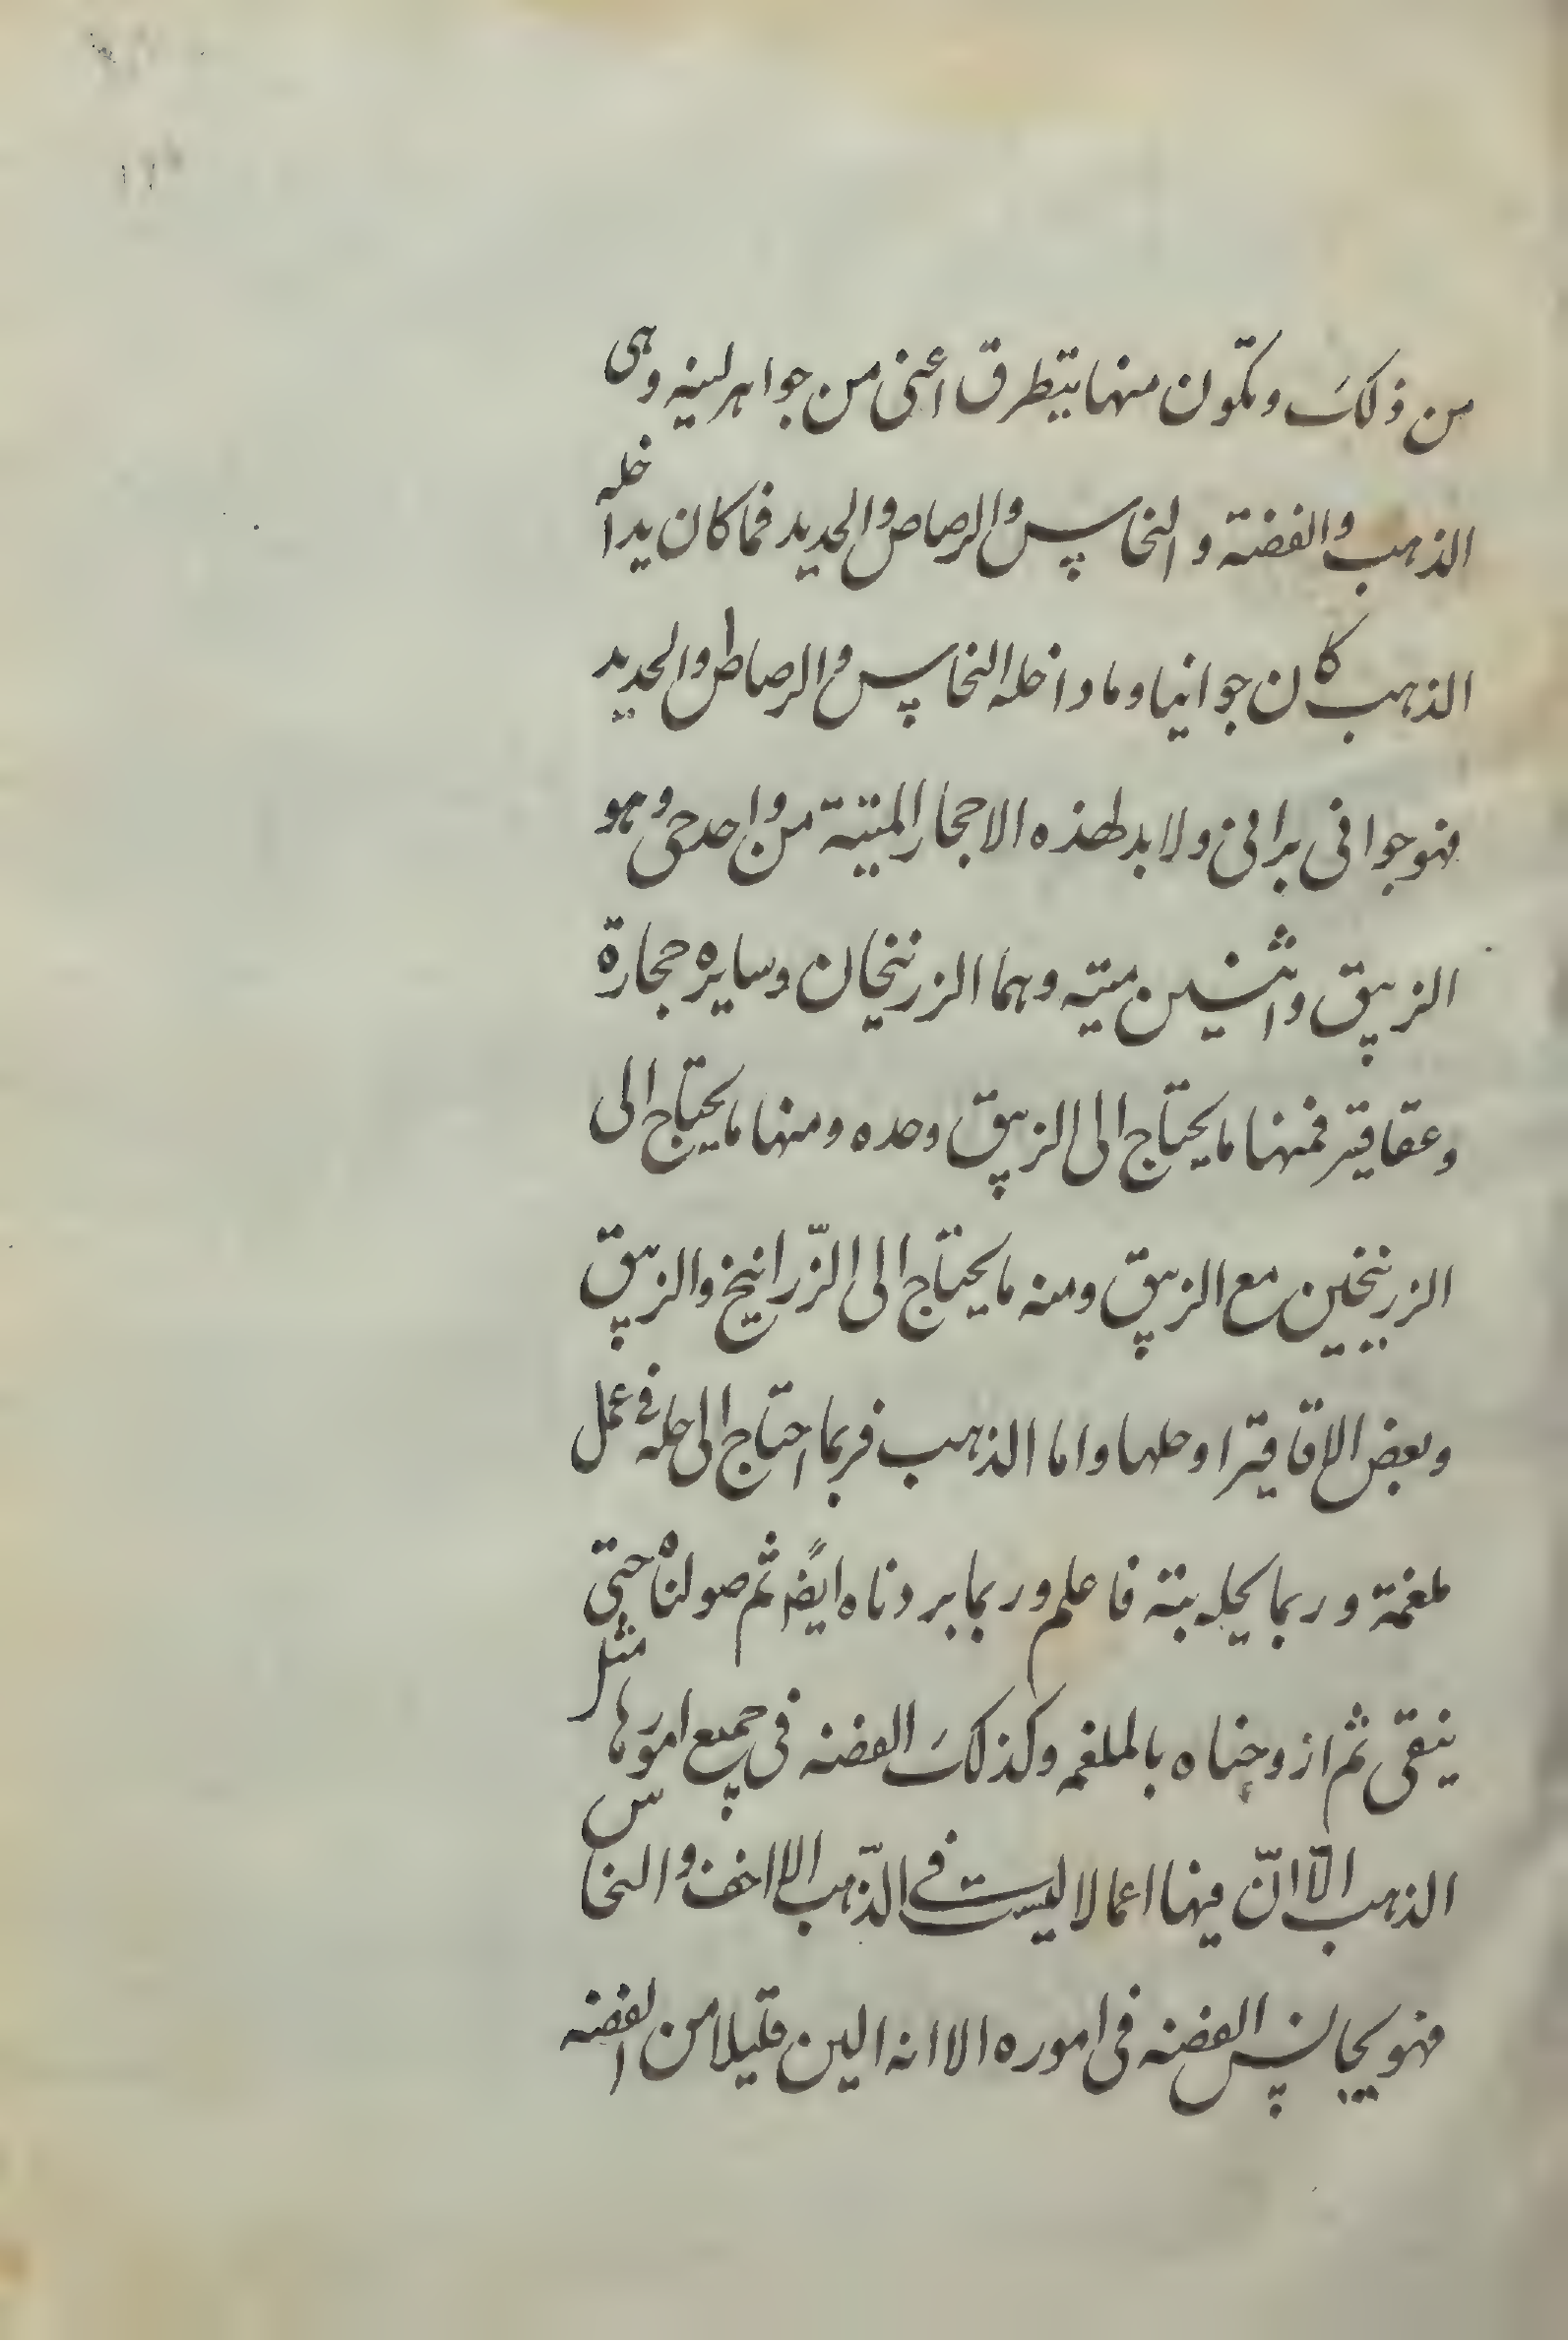 من ذلك وتكون منها يتطرق اعنى من جواهر لينه وهى
الذهب والفضة والنحاس والرصاص والحديد فما كان يداخله
الذهب كان جوانيا وما داخله النحاس والرصاص والحديد
فهو جوانى برانى ولا بد لهذه الاحجار الميتة من واحد حى وهو
الزيبق واثنين ميته وهما الزرنيخان وسايره حجارة
وعقاقير فمنها ما يحتاج الى الزيبق وحده ومنها ما يحتاج الى
الزرنيخين مع الزيبق ومنه ما يحتاج الى الزّرانيخ والزيبق
وبعض الاقاقير اوحلها واما الذهب فربما احتاج الى حله فى عمل
ملغمة وربما يحله بتة فاعلم وربما بردناه ايضً ثم صولناه حتى
ينقى ثم ازوجناه بالملغمه وكذلك الفضه فى جميع امورها مثل
الذهب الّا انّ فيها اعمالا ليست فى الذّهب الا اخف والنحاس
فهو يجانس الفضه فى اموره الا انه الين قليلا من الفضه